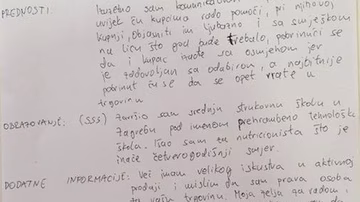 PREDNOSTI: Izuzetno sam komunikativan
uvijek ću kupcima rado pomoći, pri njihovoj
kupnji, objasniti im ljubazno i sa smješkom
na licu što god bude trebalo, pobrinući se
da i kupac izađe sa osmjehom jer
je zadovoljan sa odabirom, a najbitnije
pobrinut ću se da se opet vrate u
trgovinu
OBRAZOVANJE: (SSS) Završio sam srednju strukovnu školu u
Zagrebu pod imenom prehrambeno tehnološka
škola. Išao sam za nutricionista što je
inače četverogodišnji smjer.
DODATNE INFORMACIJE: Već imam velikog iskustva u aktivnoj
prodaji i mislim da sam prava osoba
za vašu trgovinu. Moja želja za radom,